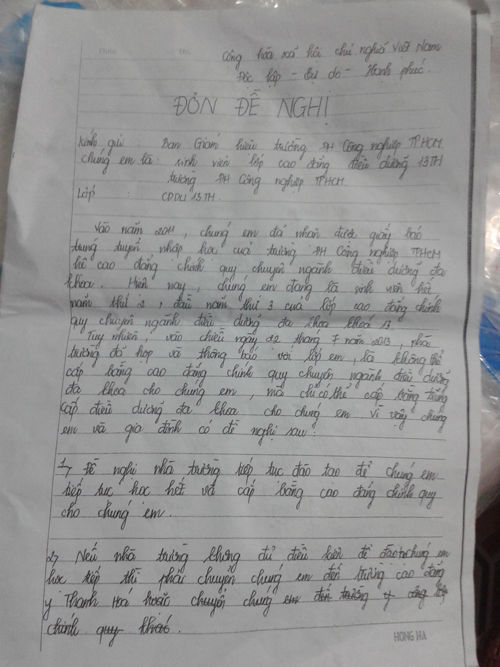 Cộng hòa xã hội chủ nghĩa Việt Nam
Độc lập - Tự do - Hạnh phúc.
ĐƠN ĐỀ NGHỊ
Kính gửi: Ban Giám hiệu trường ĐH Công nghiệp TPHCM
chúng em là: sinh viên lớp cao đẳng điều dưỡng 13TH
trường ĐH Công nghiệp TPHCM.
Lớp: CDDD 13TH.
Vào năm 2011, chúng em đã nhận được giấy báo
trúng tuyển nhập học của trường ĐH Công nghiệp TPHCM
hệ cao đẳng chính quy chuyên ngành điều dưỡng đa
khoa. Hiện nay, chúng em đang là sinh viên hết
năm thứ 2, đầu năm thứ 3 của lớp cao đẳng chính
quy chuyên ngành điều dưỡng đa khoa khoá 13
Tuy nhiên, vào chiều ngày 22 tháng 7 năm 2013, nhà
trường đã họp và thông báo với lớp em, là không thể
cấp bằng cao đẳng chính quy chuyên ngành điều dưỡng
đa khoa cho chúng em, mà chỉ có thể cấp bằng trung
cấp điều dưỡng đa khoa cho chúng em vì vậy chúng
em và gia đình có đề nghị sau:
1, Đề nghị nhà trường tiếp tục đào tạo để chúng em
tiếp tục học hết và cấp bằng cao đẳng chính quy
cho chúng em.
2, Nếu nhà trường không đủ điều kiện để đào tạo chúng em
học tiếp thì phải chuyển chúng em đến trường cao đẳng
y Thanh Hoá hoặc chuyển chúng em đến trường
chính quy khác.
HONG HA